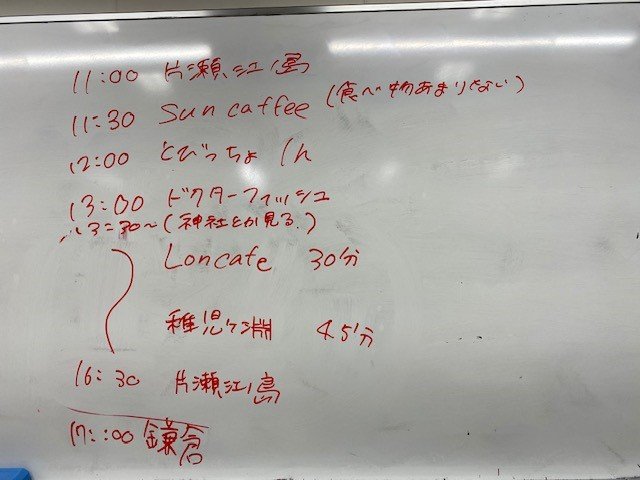 11:00 片瀬江ノ島
11:30 Sun caffee (食べ物あまりない)
12:00 とびっちょ 1h
13:00 ドクターフィッシュ
13:30~(神社とか見る)
Loncafe 30分
稚児ケ淵 45分
16:30 片瀬江ノ島
17:00 鎌倉